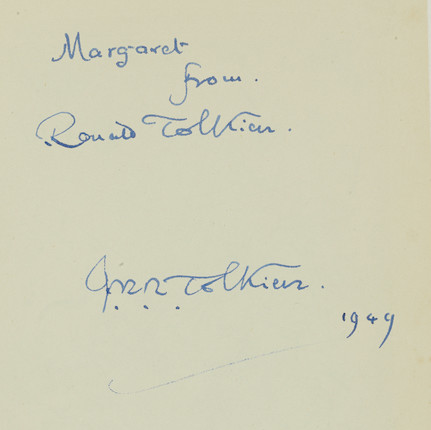 Margaret
from.
Ronald Tolkien.
J.R.R. Tolkien.
1949